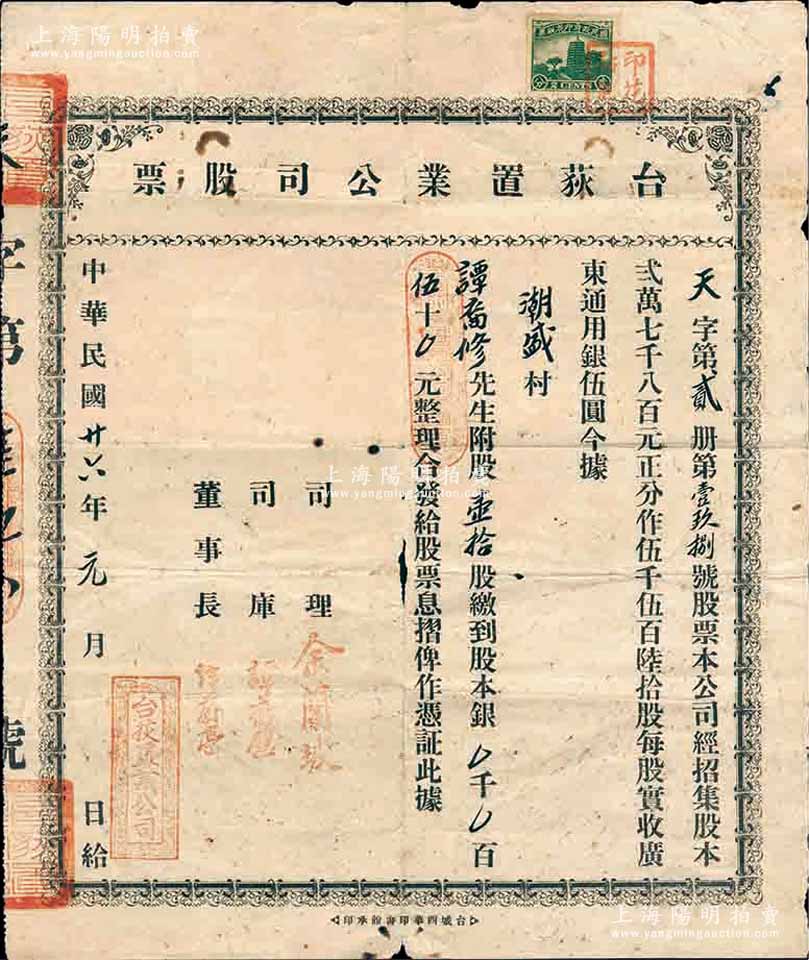 上海陽明拍賣
www.yangmingauction.com
貳分 2 CENTS
台荻置業公司股票
天字第貳冊第壹玖捌號股票本公司經招集股本
弍萬七千八百元正分作伍千伍百陸拾股每股實收廣
東通用銀伍圓今據
潮盛村
譚喬修先生附股壹拾股繳到股本銀〇千〇百
伍十〇元整理合發給股票息摺俾作憑証此據
司理
司庫
董事長
台荻置業公司
中華民國廿六年元月 日給
字第
號
上海陽明拍賣
www.yangmingauction.com
台城西華印書館承印
上海陽明拍賣
www.yangmingauction.com